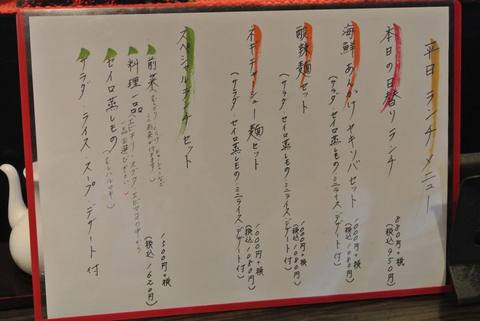 平日 ランチ メニュー
本日の日替りランチ
880円+税
(税込950円)
海鮮あんかけヤキソバセット
(サラダ セイロ蒸しもの ミニライス デザート付)
1000円+税
(税込1080円)
酸辣麺セット
(サラダ セイロ蒸しもの ミニライス デザート付)
1000円+税
(税込1080円)
ネギチャーシュー麺セット
(サラダ セイロ蒸しもの ミニライス デザート付)
1000円+税
(税込1080円)
スペシャルランチセット
1500円+税
(税込1620円)
前菜
料理一品
セイロ蒸しもの
サラダ・ライス スープ・デザート付